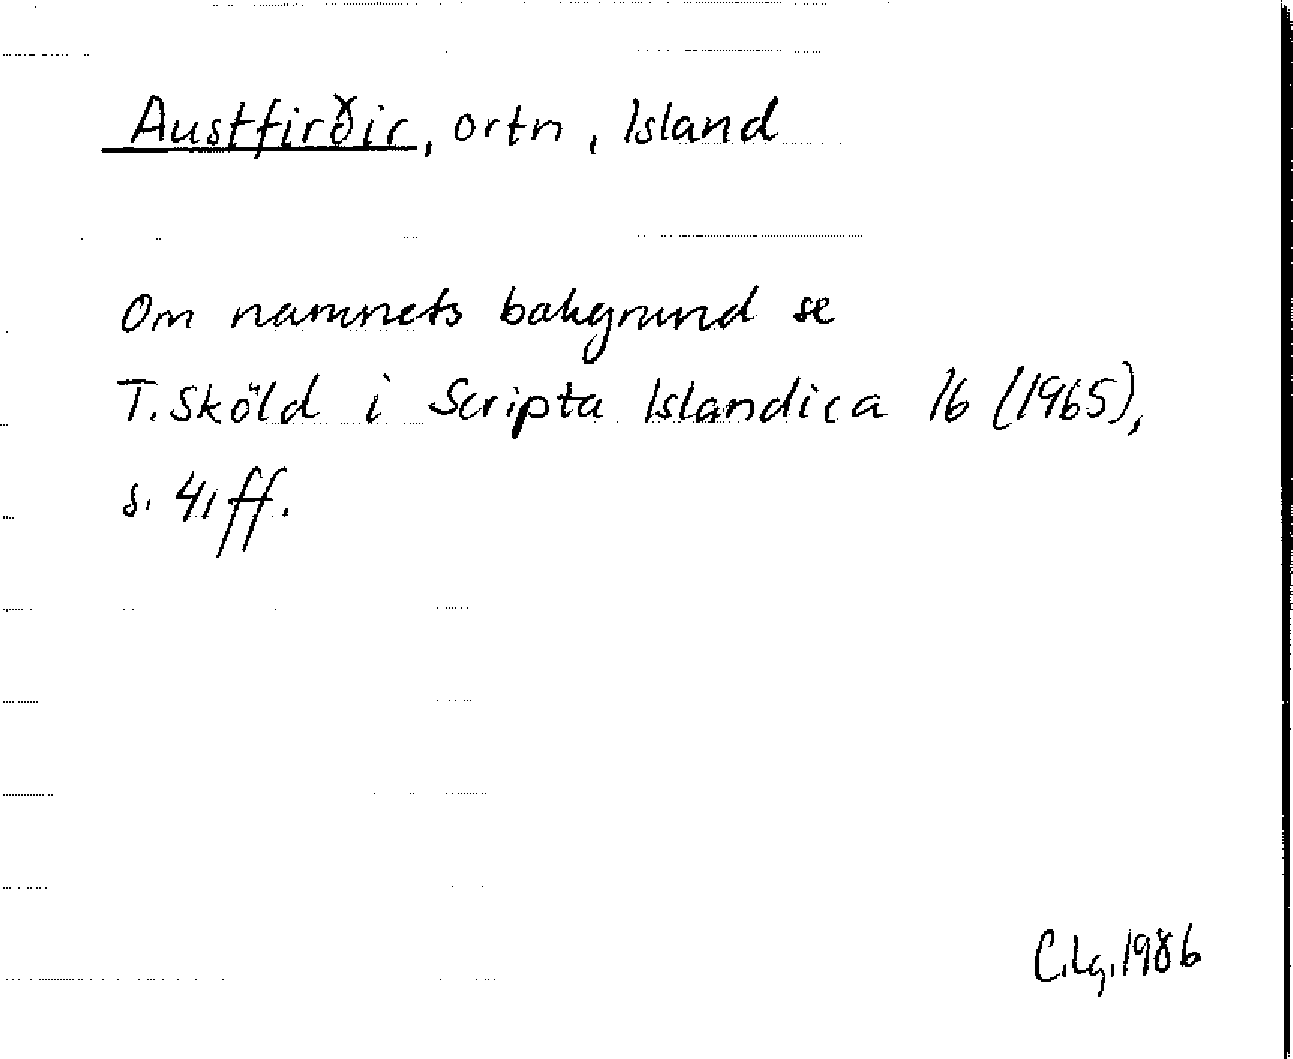 Austfirðir, ortn, Island
Om namnets bakgrund se
T. Sköld i Scripta Islandica 16 (1965),
s. 41 ff.
C.Lg. 1986